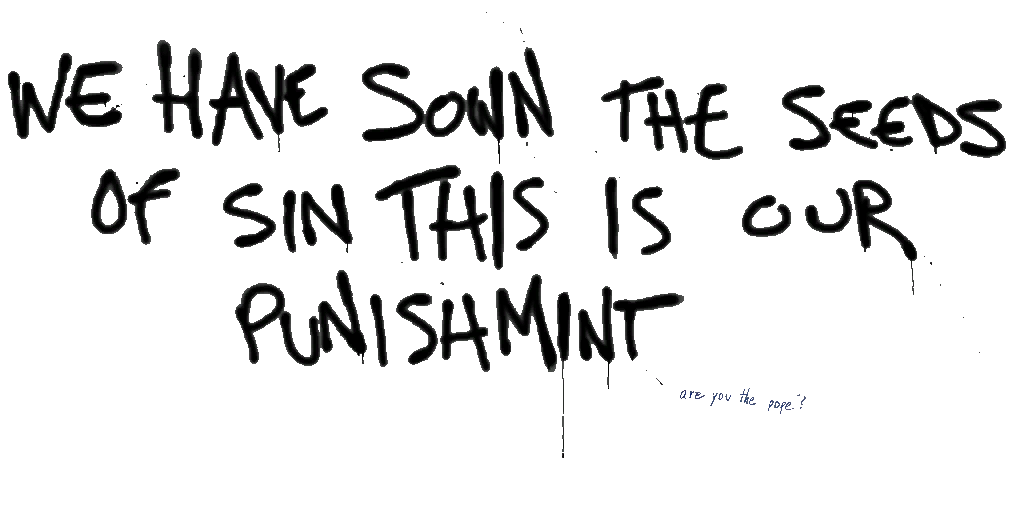 WE HAVE SOWN THE SEEDS
OF SIN THIS IS OUR
PUNISHMINT
are you the pope?